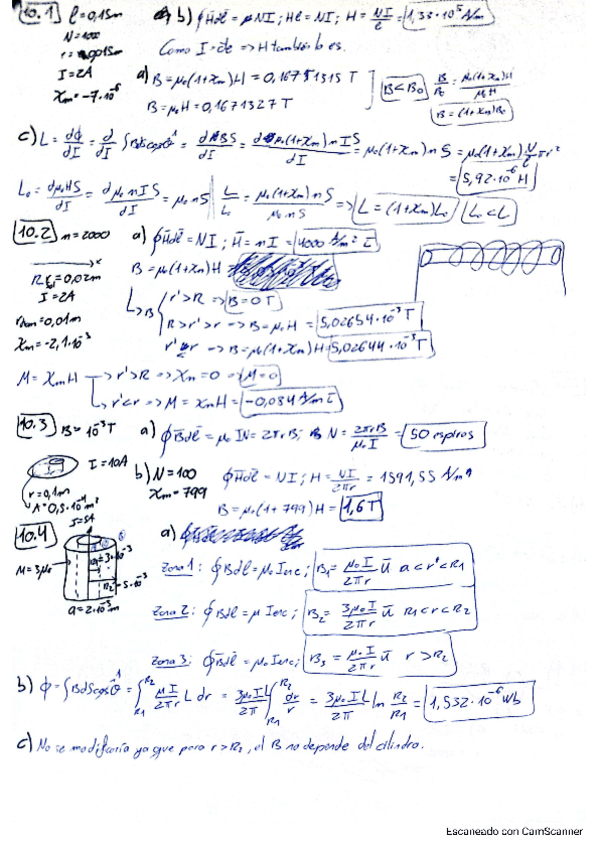 10.1 l=0,15m b) ∮H̄dl̄ = NI; Hl = NI; H = NI/l = 1,33·10⁵ A/m
N=1000
Como I=cte => H también lo es.
I=2A
χm=-7·10⁻⁶
a) B = μ₀(1+χm)H = 0,1671315 T
B = μ₀H = 0,1671327 T
B<B₀ B/B₀ = μ₀(1+χm)H/μ₀H
B = (1+χm)B₀
c) L = dϕ/dI = d/dI ∫BdS cosθ = dBS/dI = dμ₀(1+χm)nIS/dI = μ₀(1+χm)nS = μ₀(1+χm) N/l πr²
= 5,92·10⁻⁶ H
L₀ = dμ₀HS/dI = dμ₀nIS/dI = μ₀nS | L/L₀ = μ₀(1+χm)nS/μ₀nS => L = (1+χm)L₀ L₀<L
10.2 n=2000 a) ∮H̄dl̄ = NI; H̄ = nI = 4000 A/m
R=0,02m
I=2A
B = μ₀(1+χm)H
r=0,01m
χm=-2,1·10⁻³
B r'>R => B=0T
R>r'>r => B=μ₀H = 5,02654·10⁻³ T
r'<r => B=μ₀(1+χm)H = 5,02644·10⁻³ T
M = χmH r'>R => χm=0 => M=0
r'<r => M = χmH = -0,084 A/m
10.3 B=10⁻³T a) ∮B̄dl̄ = μ₀ IN = 2πrB; N = 2πrB/μ₀I = 50 espiras
I=10A
r=0,1m
A=0,5·10⁻⁴m²
b) N=100 ∮H̄dl̄ = NI; H = NI/2πr = 1591,55 A/m
χm=799
B = μ₀(1+799)H = 1,6T
10.4 I=5A a)
M=3μ₀
R₁=3·10⁻³
R₂=5·10⁻³
a=2·10⁻³m
Zona 1: ∮Bdl = μ₀Ienc; B₁ = μ₀I/2πr ū a<r'<R1
Zona 2: ∮Bdl = μIenc; B₂ = 3μ₀I/2πr ū R1<r<R2
Zona 3: ∮B̄dl = μ₀Ienc; B₃ = μ₀I/2πr ū r>R₂
b) ϕ = ∫BdScosθ = ∫R1 R2 μI/2πr L dr = 3μ₀IL/2π ∫R1 R2 dr/r = 3μ₀IL/2π ln R2/R1 = 1,532·10⁻⁶ Wb
c) No se modificaría ya que para r>R₂, el B no depende del cilindro.
Escaneado con CamScanner